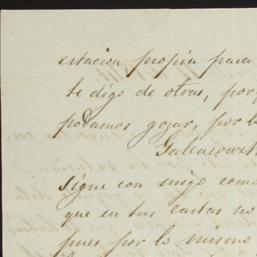 estacion propia para
te digo de otras, por
podamos gozar, por l
Galeusowsk
sigue con migo como
que en tus cartas no
pues por lo mismo